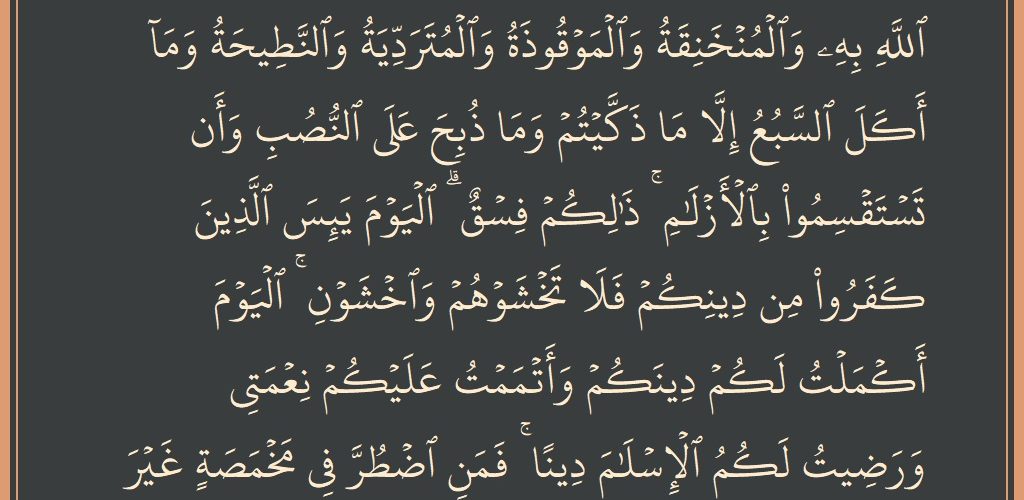 ٱللَّهِ بِهِۦ وَٱلْمُنْخَنِقَةُ وَٱلْمَوْقُوذَةُ وَٱلْمُتَرَدِّيَةُ وَٱلنَّطِيحَةُ وَمَآ
أَكَلَ ٱلسَّبُعُ إِلَّا مَا ذَكَّيْتُمْ وَمَا ذُبِحَ عَلَى ٱلنُّصُبِ وَأَن
تَسْتَقْسِمُوا۟ بِٱلْأَزْلَٰمِ ۚ ذَٰلِكُمْ فِسْقٌ ۗ ٱلْيَوْمَ يَئِسَ ٱلَّذِينَ
كَفَرُوا۟ مِن دِينِكُمْ فَلَا تَخْشَوْهُمْ وَٱخْشَوْنِ ۚ ٱلْيَوْمَ
أَكْمَلْتُ لَكُمْ دِينَكُمْ وَأَتْمَمْتُ عَلَيْكُمْ نِعْمَتِى
وَرَضِيتُ لَكُمُ ٱلْإِسْلَٰمَ دِينًا ۚ فَمَنِ ٱضْطُرَّ فِى مَخْمَصَةٍ غَيْرَ